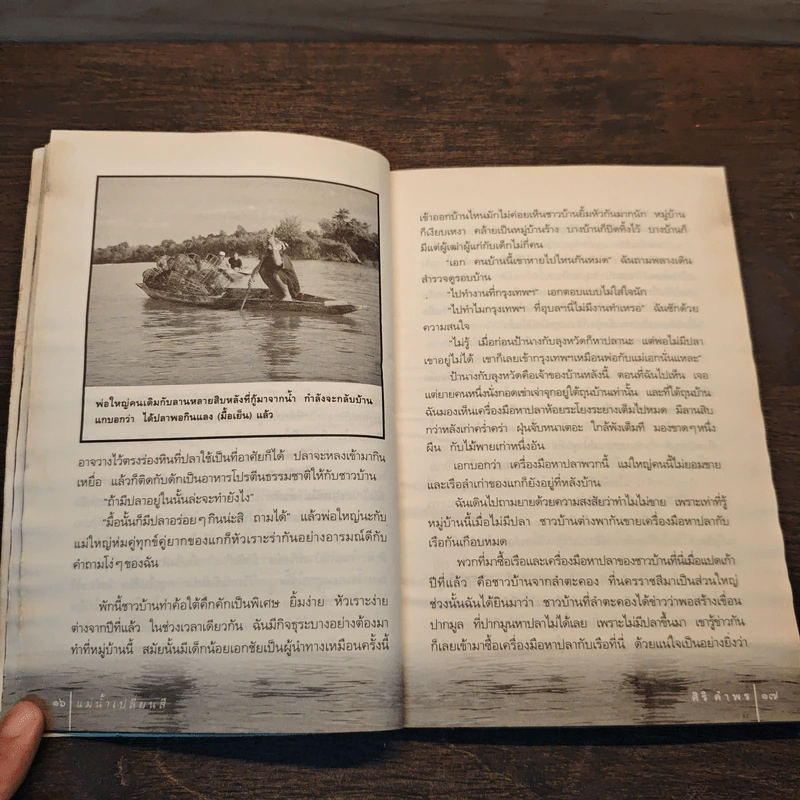 พ่อใหญ่คนเดิมกับลานหลายสิบหลังที่กู้มาจากน้ำ กำลังจะกลับบ้าน
แกบอกว่า ได้ปลาพอกินแลง (มื้อเย็น) แล้ว
อาจวางไว้ตรงร่องหินที่ปลาใช้เป็นที่อาศัยก็ได้ ปลาจะหลงเข้ามากิน
เหยื่อ แล้วก็ติดกับดักเป็นอาหารโปรตีนธรรมชาติให้กับชาวบ้าน
"ถ้ามีปลาอยู่ในนั้นล่ะจะทำยังไง"
"มื้อนั้นก็มีปลาอร่อยๆกินน่ะสิ ถามได้" แล้วพ่อใหญ่นะกับ
แม่ใหญ่ห่มคู่ทุกข์คู่ยากของแกก็หัวเราะร่ากันอย่างอารมณ์ดีกับ
คำถามโง่ๆของฉัน
พักนี้ชาวบ้านท่าค้อใต้คึกคักเป็นพิเศษ ยิ้มง่าย หัวเราะง่าย
ต่างจากปีที่แล้ว ในช่วงเวลาเดียวกัน ฉันมีกิจธุระบางอย่างต้องมา
ทำที่หมู่บ้านนี้ สมัยนั้นมีเด็กน้อยเอกชัยเป็นผู้นำทางเหมือนครั้งนี้
๑๖ แม่น้ำเปลี่ยนสี
เข้าออกบ้านไหนมักไม่ค่อยเห็นชาวบ้านยิ้มหัวกันมากนัก หมู่บ้าน
ก็เงียบเหงา คล้ายเป็นหมู่บ้านร้าง บางบ้านก็ปิดทิ้งไว้ บางบ้านก็
มีแต่ผู้เฒ่าผู้แก่กับเด็กไม่กี่คน
"เอก คนบ้านนี้เขาหายไปไหนกันหมด" ฉันถามพลางเดิน
สำรวจดูรอบบ้าน
"ไปทำงานที่กรุงเทพฯ" เอกตอบแบบไม่ใส่ใจนัก
"ไปทำไมกรุงเทพฯ ที่อุบลฯนี่ไม่มีงานทำเหรอ" ฉันซักด้วย
ความสนใจ
"ไม่รู้ เมื่อก่อนป้านางกับลุงหวัดก็หาปลานะ แต่พอไม่มีปลา
เขาอยู่ไม่ได้ เขาก็เลยเข้ากรุงเทพฯเหมือนพ่อกับแม่เอกนั่นแหละ"
ป้านางกับลุงหวัดคือเจ้าของบ้านหลังนี้ ตอนที่ฉันไปเห็น เจอ
แต่ยายคนหนึ่งนั่งกอดเข่าเจ่าจุกอยู่ใต้ถุนบ้านเท่านั้น และที่ใต้ถุนบ้าน
ฉันมองเห็นเครื่องมือหาปลาห้อยระโยงระยางเต็มไปหมด มีลานสิบ
กว่าหลังเก่าคร่ำคร่า ฝุ่นจับหนาเตอะ ใกล้พังเต็มที มองขาดๆหนึ่ง
ผืน กับไม้พายเก่าหนึ่งอัน
เอกบอกว่า เครื่องมือหาปลาพวกนี้ แม่ใหญ่คนนี้ไม่ยอมขาย
และเรือลำเก่าของแกก็ยังอยู่ที่หลังบ้าน
ฉันเดินไปถามยายด้วยความสงสัยว่าทำไมไม่ขาย เพราะเท่าที่รู้
หมู่บ้านนี้เมื่อไม่มีปลา ชาวบ้านต่างพากันขายเครื่องมือหาปลากับ
เรือกันเกือบหมด
พวกที่มาซื้อเรือและเครื่องมือหาปลาของชาวบ้านที่นี่เมื่อแปดเก้า
ปีที่แล้ว คือชาวบ้านจากลำตะคอง ที่นครราชสีมาเป็นส่วนใหญ่
ช่วงนั้นฉันได้ยินมาว่า ชาวบ้านที่ลำตะคองได้ข่าวว่าพอสร้างเขื่อน
ปากมูล ที่ปากมูนหาปลาไม่ได้เลย เพราะไม่มีปลาขึ้นมา เขารู้ข่าวกัน
ก็เลยเข้ามาซื้อเครื่องมือหาปลากับเรือที่นี่ ด้วยแน่ใจเป็นอย่างยิ่งว่า
ศิริ คำพร ๑๗